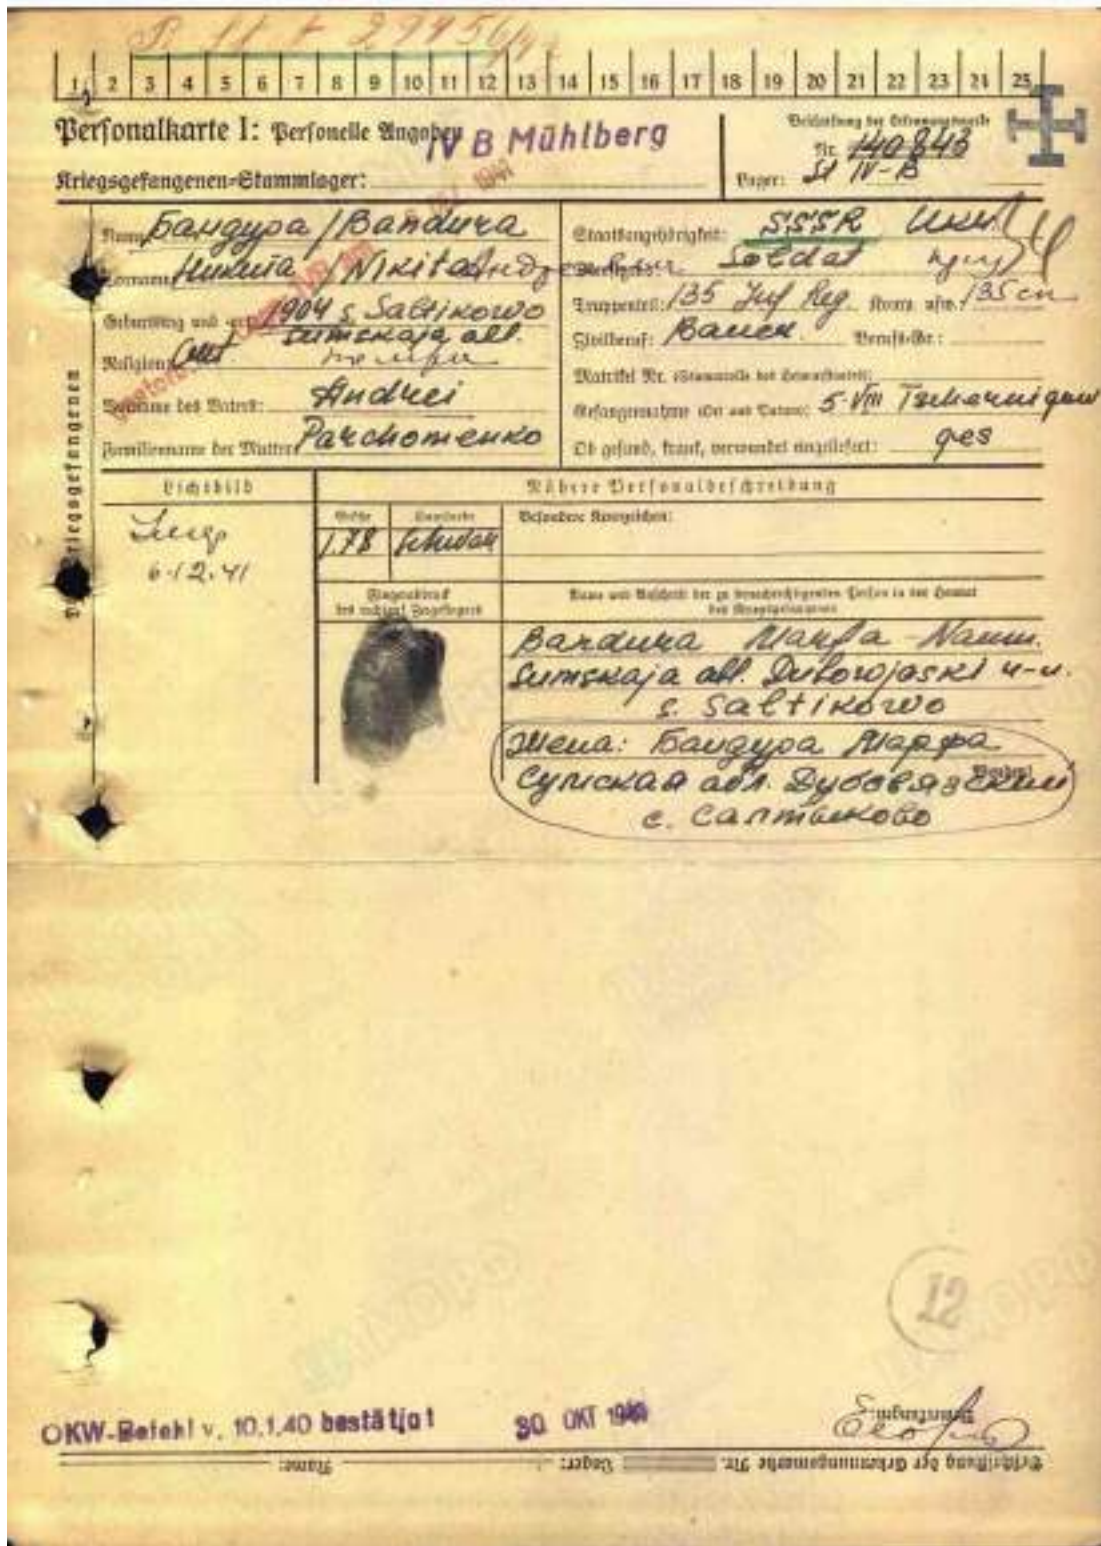 1 2 3 4 5 6 7 8 9 10 11 12 13 14 15 16 17 18 19 20 21 22 23 24 25
Personalkarte I: Personelle Angaben
IV B Mühlberg
Kriegsgefangenen-Stammlager:
Beschriftung der Erkennungsmarke
Nr. 140843
Lager: St IV-B
Name: Бандура / Bandura
Vorname: Никита / Nikita
Geburtstag und -ort: 1904 s. Saltikowo
Sumskaja obl.
Religion:
Vorname des Vaters: Andrei
Familienname der Mutter: Parchomenko
Staatsangehörigkeit: SSSR Ukr.
Dienstgrad: Soldat
Truppenteil: 135 Inf Reg. Komp. usw.:
Zivilberuf: Bauer. Berufs-Gr.:
Matrikel Nr. (Stammrolle des Heimatstaates):
Gefangennahme (Ort und Datum): 5. VIII Tschernigow
Ob gesund, krank, verwundet eingeliefert: ges
Des Kriegsgefangenen
Lichtbild
6.12.41
Nähere Personalbeschreibung
Größe
Haarfarbe
Besondere Kennzeichen:
1.78 schwarz
Fingerabdruck
des rechten! Zeigefingers
Name und Anschrift der zu benachrichtigenden Person in der Heimat
des Kriegsgefangenen
Bandura Marfa Naum.
Sumskaja obl. Dubowjaski
s. Saltikowo
Жена: Бандура Марфа
Сумская обл. Дубовязский
с. Салтыково
12
OKW-Befehl v. 10.1.40 bestätigt
30. OKT 1940
Beschriftung der Erkennungsmarke Nr. Lager: Name: